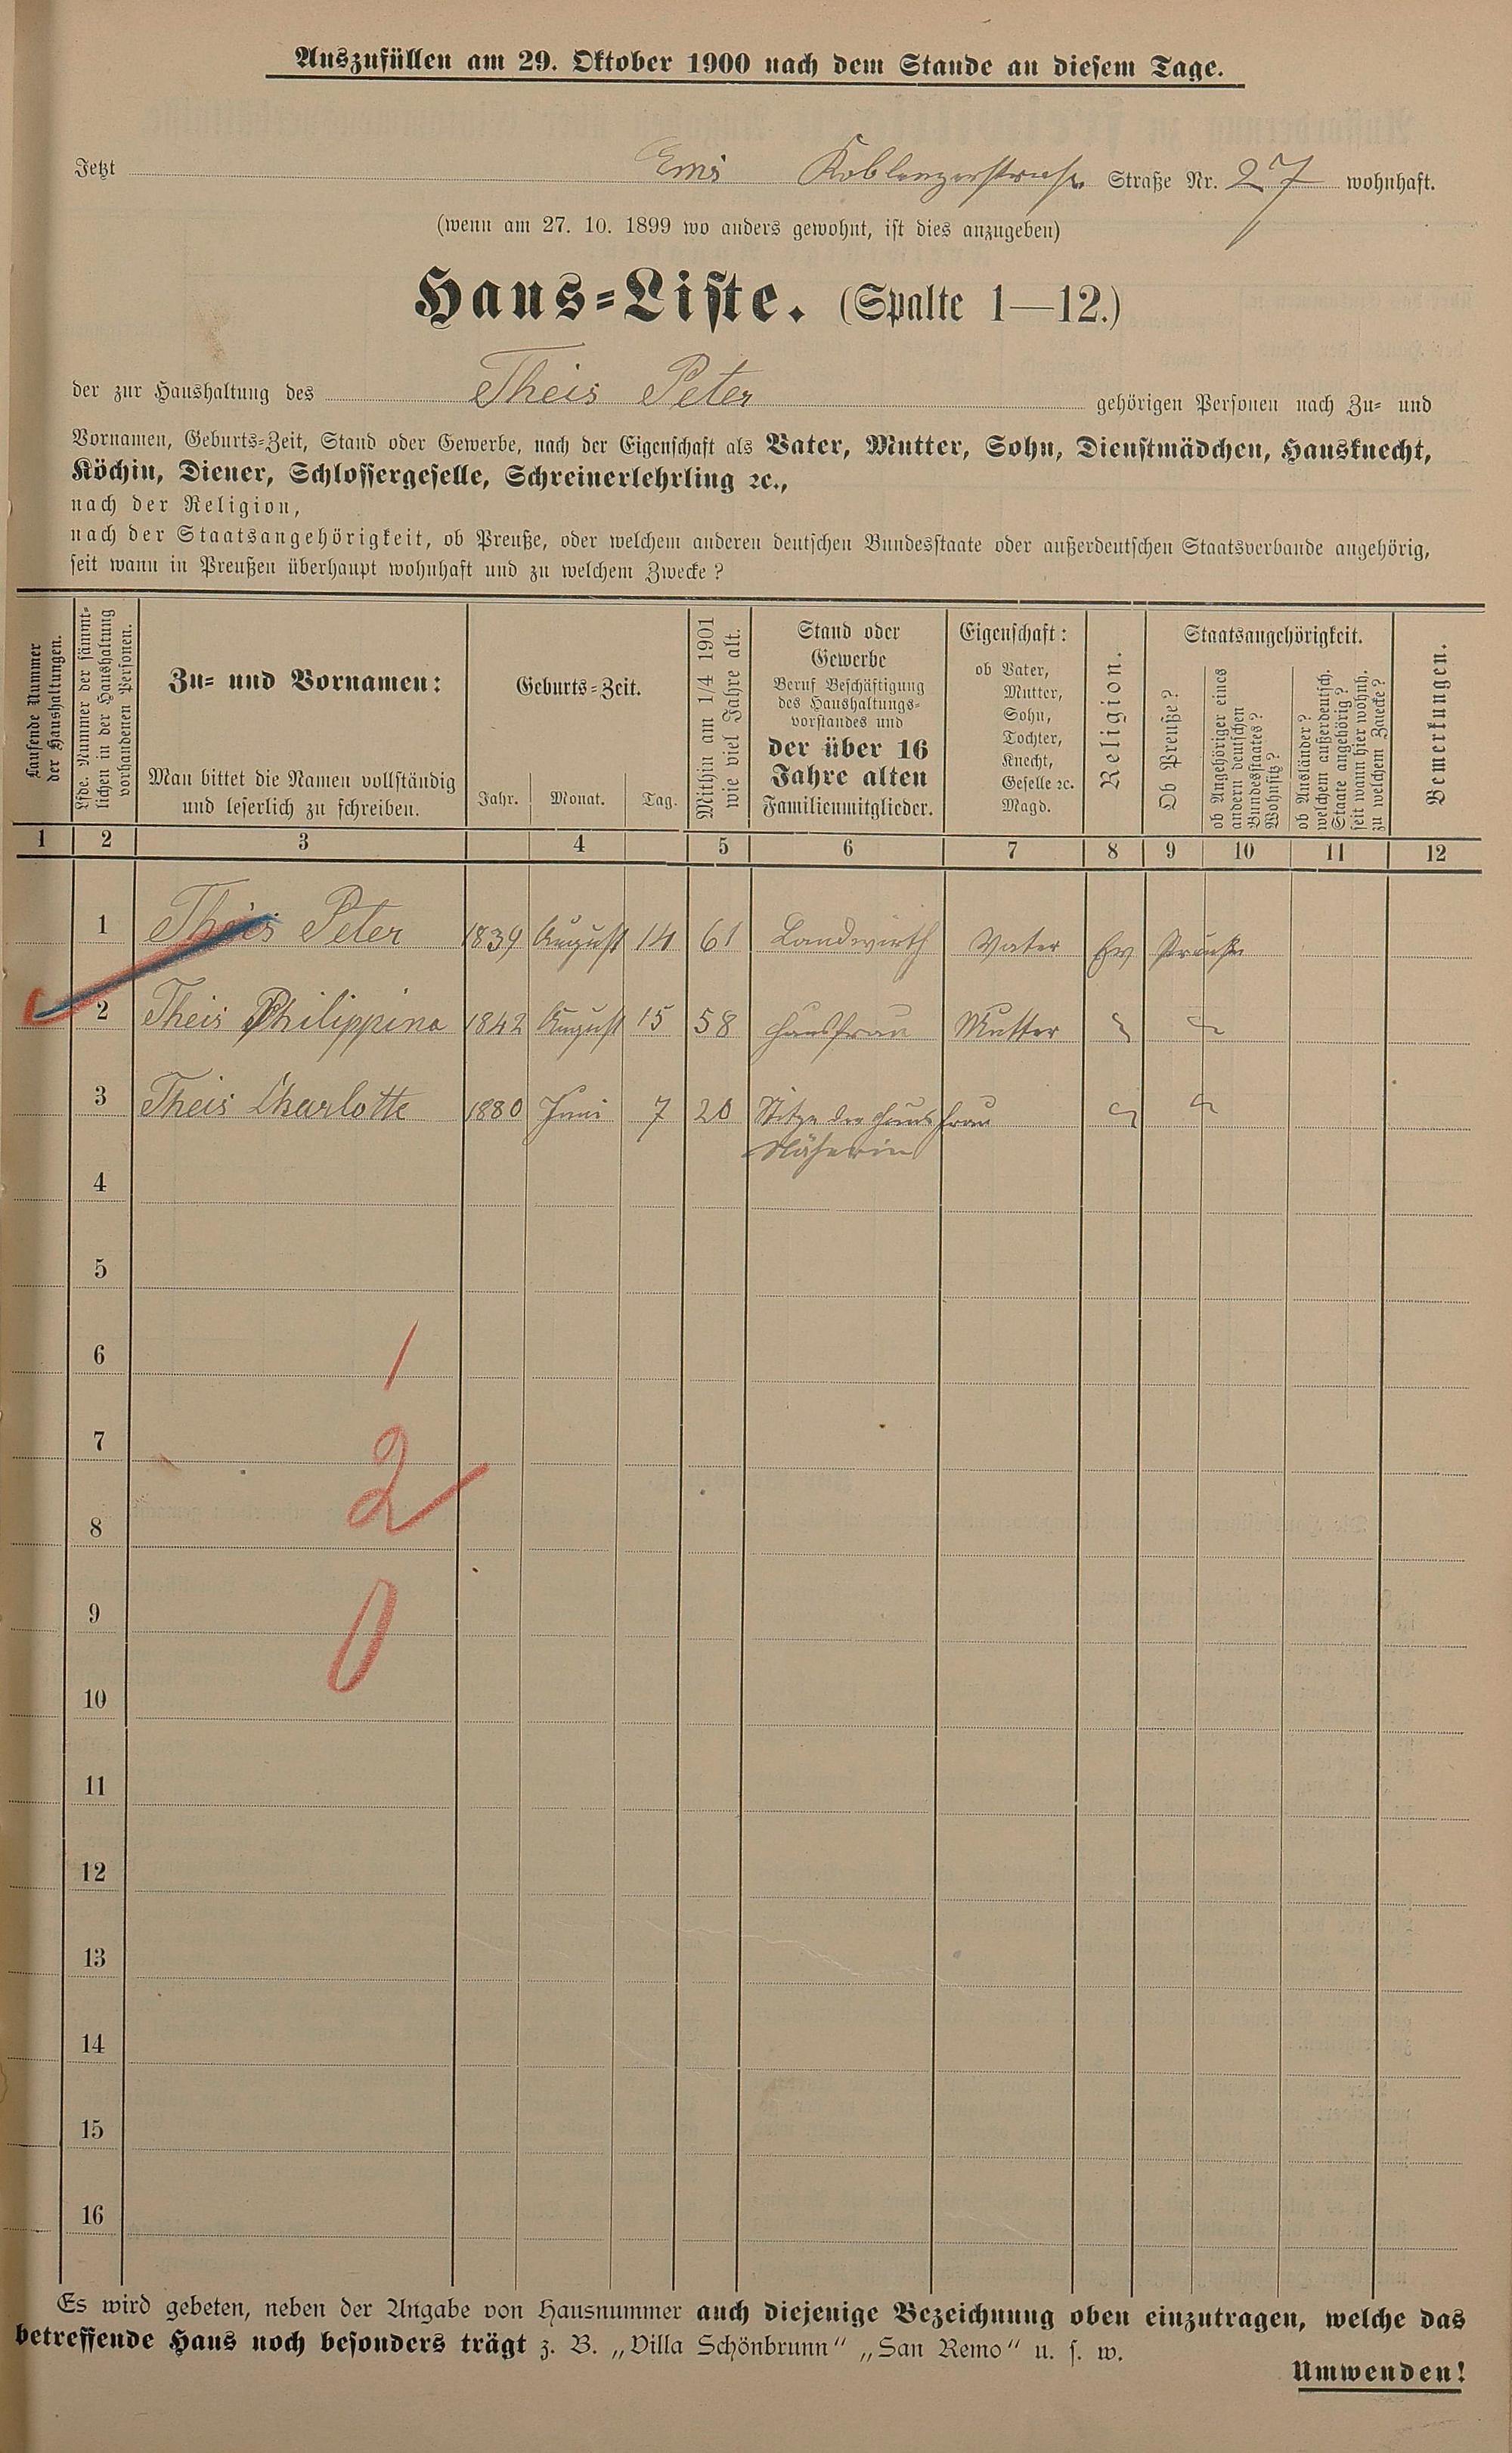 Auszufüllen am 29. Oktober 1900 nach dem Stande an diesem Tage.
Jetzt Ems Koblenzerstrasse Straße Nr. 27 wohnhaft.
(wenn am 27. 10. 1899 wo anders gewohnt, ist dies anzugeben)
Haus-Liste. (Spalte 1—12.)
der zur Haushaltung des Theis Peter gehörigen Personen nach Zu- und
Vornamen, Geburts-Zeit, Stand oder Gewerbe, nach der Eigenschaft als Vater, Mutter, Sohn, Dienstmädchen, Hausknecht,
Köchin, Diener, Schlossergeselle, Schreinerlehrling ꝛc.,
nach der Religion,
nach der Staatsangehörigkeit, ob Preuße, oder welchem anderen deutschen Bundesstaate oder außerdeutschen Staatsverbande angehörig,
seit wann in Preußen überhaupt wohnhaft und zu welchem Zwecke?
Laufende Nummer
der Haushaltungen.
Lfde. Nummer der sämmt-
lichen in der Haushaltung
vorhandenen Personen.
Zu- und Vornamen:
Man bittet die Namen vollständig
und leserlich zu schreiben.
Geburts-Zeit.
Jahr. Monat. Tag.
Mithin am 1/4 1901
wie viel Jahre alt.
Stand oder
Gewerbe
Beruf Beschäftigung
des Haushaltungs-
vorstandes und
der über 16
Jahre alten
Familienmitglieder.
Eigenschaft:
ob Vater,
Mutter,
Sohn,
Tochter,
Knecht,
Geselle ꝛc.
Magd.
Religion.
Staatsangehörigkeit.
Ob Preuße?
ob Angehöriger eines
andern deutschen
Bundesstaates?
Wohnsitz?
ob Ausländer?
welchem außerdeutsch.
Staate angehörig?
seit wann hier wohnh.
zu welchem Zwecke?
Bemerkungen.
1 2 3 4 5 6 7 8 9 10 11 12
1 Theis Peter 1839 August 14 61 Landwirth Vater Ev Preuße
2 Theis Philippina 1842 August 15 58 Hausfrau Mutter
3 Theis Charlotte 1880 Juni 7 20 Stütze der Hausfrau
Näherin
4
5
6
1
7
2
8
9
0
10
11
12
13
14
15
16
Es wird gebeten, neben der Angabe von Hausnummer auch diejenige Bezeichnung oben einzutragen, welche das
betreffende Haus noch besonders trägt z. B. „Villa Schönbrunn“ „San Remo“ u. s. w.
Umwenden!